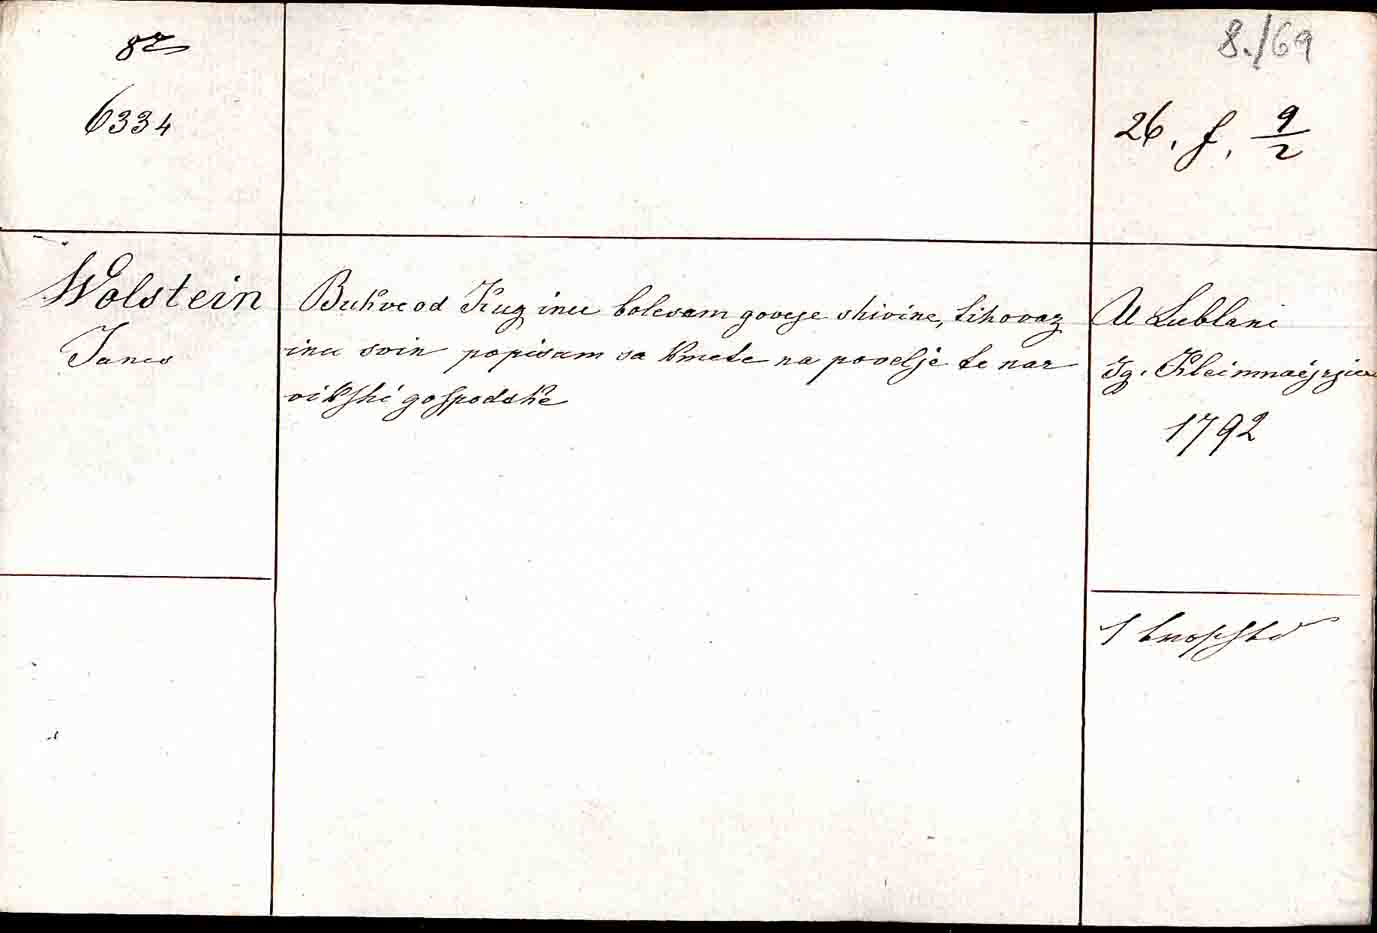 8º
6334
8./69
26. f. 9/2
Wolstein
Janes
Bukve od Kug inu bolesam goveje shivine, tihovaz
inu svin popisam sa kmete na povelje te nar
vikshi gosposdske
U Lublani
Ig. Kleinmayrjiee
1792